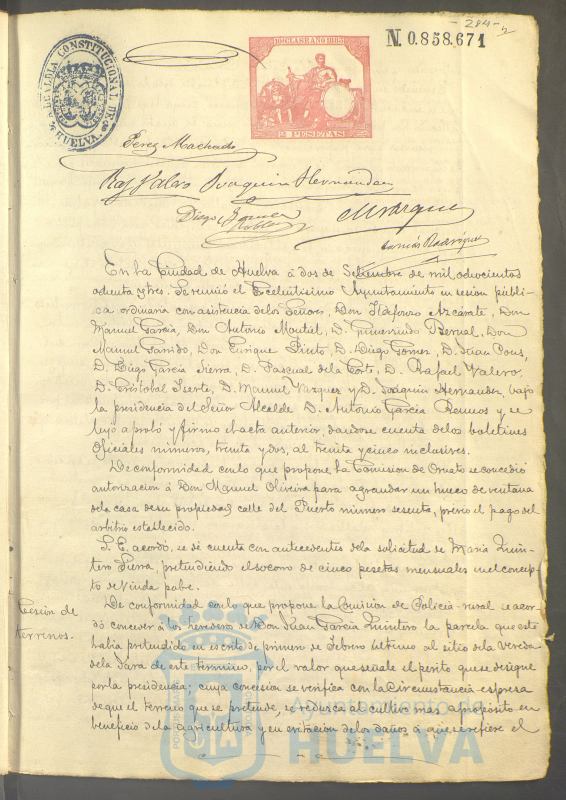 - 284 - 2
N. 0.858.671
ALCALDIA CONSTITUCIONAL DE HUELVA.
10ª CLASE AÑO 1883
2 PESETAS
Perez Machado
Raf Valero Joaquin Hernandez
Diego Gomez M Vazquez
Tomás Rodriguez
En la Ciudad de Huelva á dos de Setiembre de mil ochocientos
ochenta y tres. Se reunió el Ecelentisimo Ayuntamiento en sesion públi-
ca ordinaria con asistencia delos Señores, Don Ildefonso Azcarate, Don
Manuel Garcia, Don Antonio Montiel, D. Gumersindo Bernal, Don
Manuel Garrido, Don Enrique Prieto, D. Diego Gomez, D. Juan Cons,
D. Diego Garcia Sierra, D. Pascual dela Corte, D. Rafael Valero,
D. Cristobal Iserte, D. Manuel Vazquez y D. Joaquin Hernandez, bajo
la presidencia del Señor Alcalde D. Antonio Garcia Ramos y se
leyó aprobó y firmó el acta anterior, dandose cuenta delos boletines
Oficiales números, treinta y dos, al treinta y cinco inclusives.
De conformidad con lo que propone la Comision de Ornato se concedió
autorizacion á Don Manuel Oliveira para agrandar un hueco de ventana
dela casa desu propiedad calle del Puerto número sesenta, previo el pago del
arbitrio establecido.
S. E. acordó, se dé cuenta con antecedentes dela solicitud de Maria Quin-
tero Sierra, pretendiendo el socorro de cinco pesetas mensuales en el concep-
to de Viuda pobre.
Cesion de
terrenos.
De conformidad con lo que propone la Comision de Policia rural se acor-
dó conceder á los herederos de Don Juan Garcia Quintero la parcela que este
habia pretendido en escrito de primero de Febrero último al sitio dela Vereda
dela Jara de este termino, por el valor que señale el perito que se designe
por la presidencia; cuya concesion se verifica con la Circunstancia espresa
de que el terreno que se pretende, se reduzca al cultivo mas aproposito en
beneficio dela agricultura y en evitacion delos daños á que se refiere el
Ayuntamiento de
HUELVA